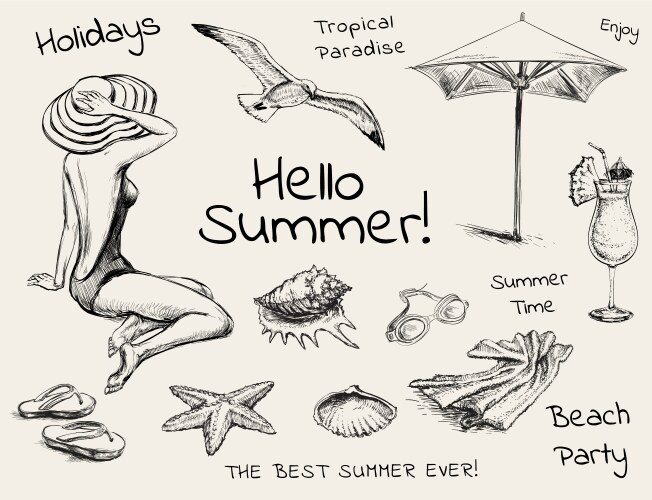 Holidays
Tropical
Paradise
Enjoy
Hello
Summer!
Summer
Time
Beach
Party
THE BEST SUMMER EVER!